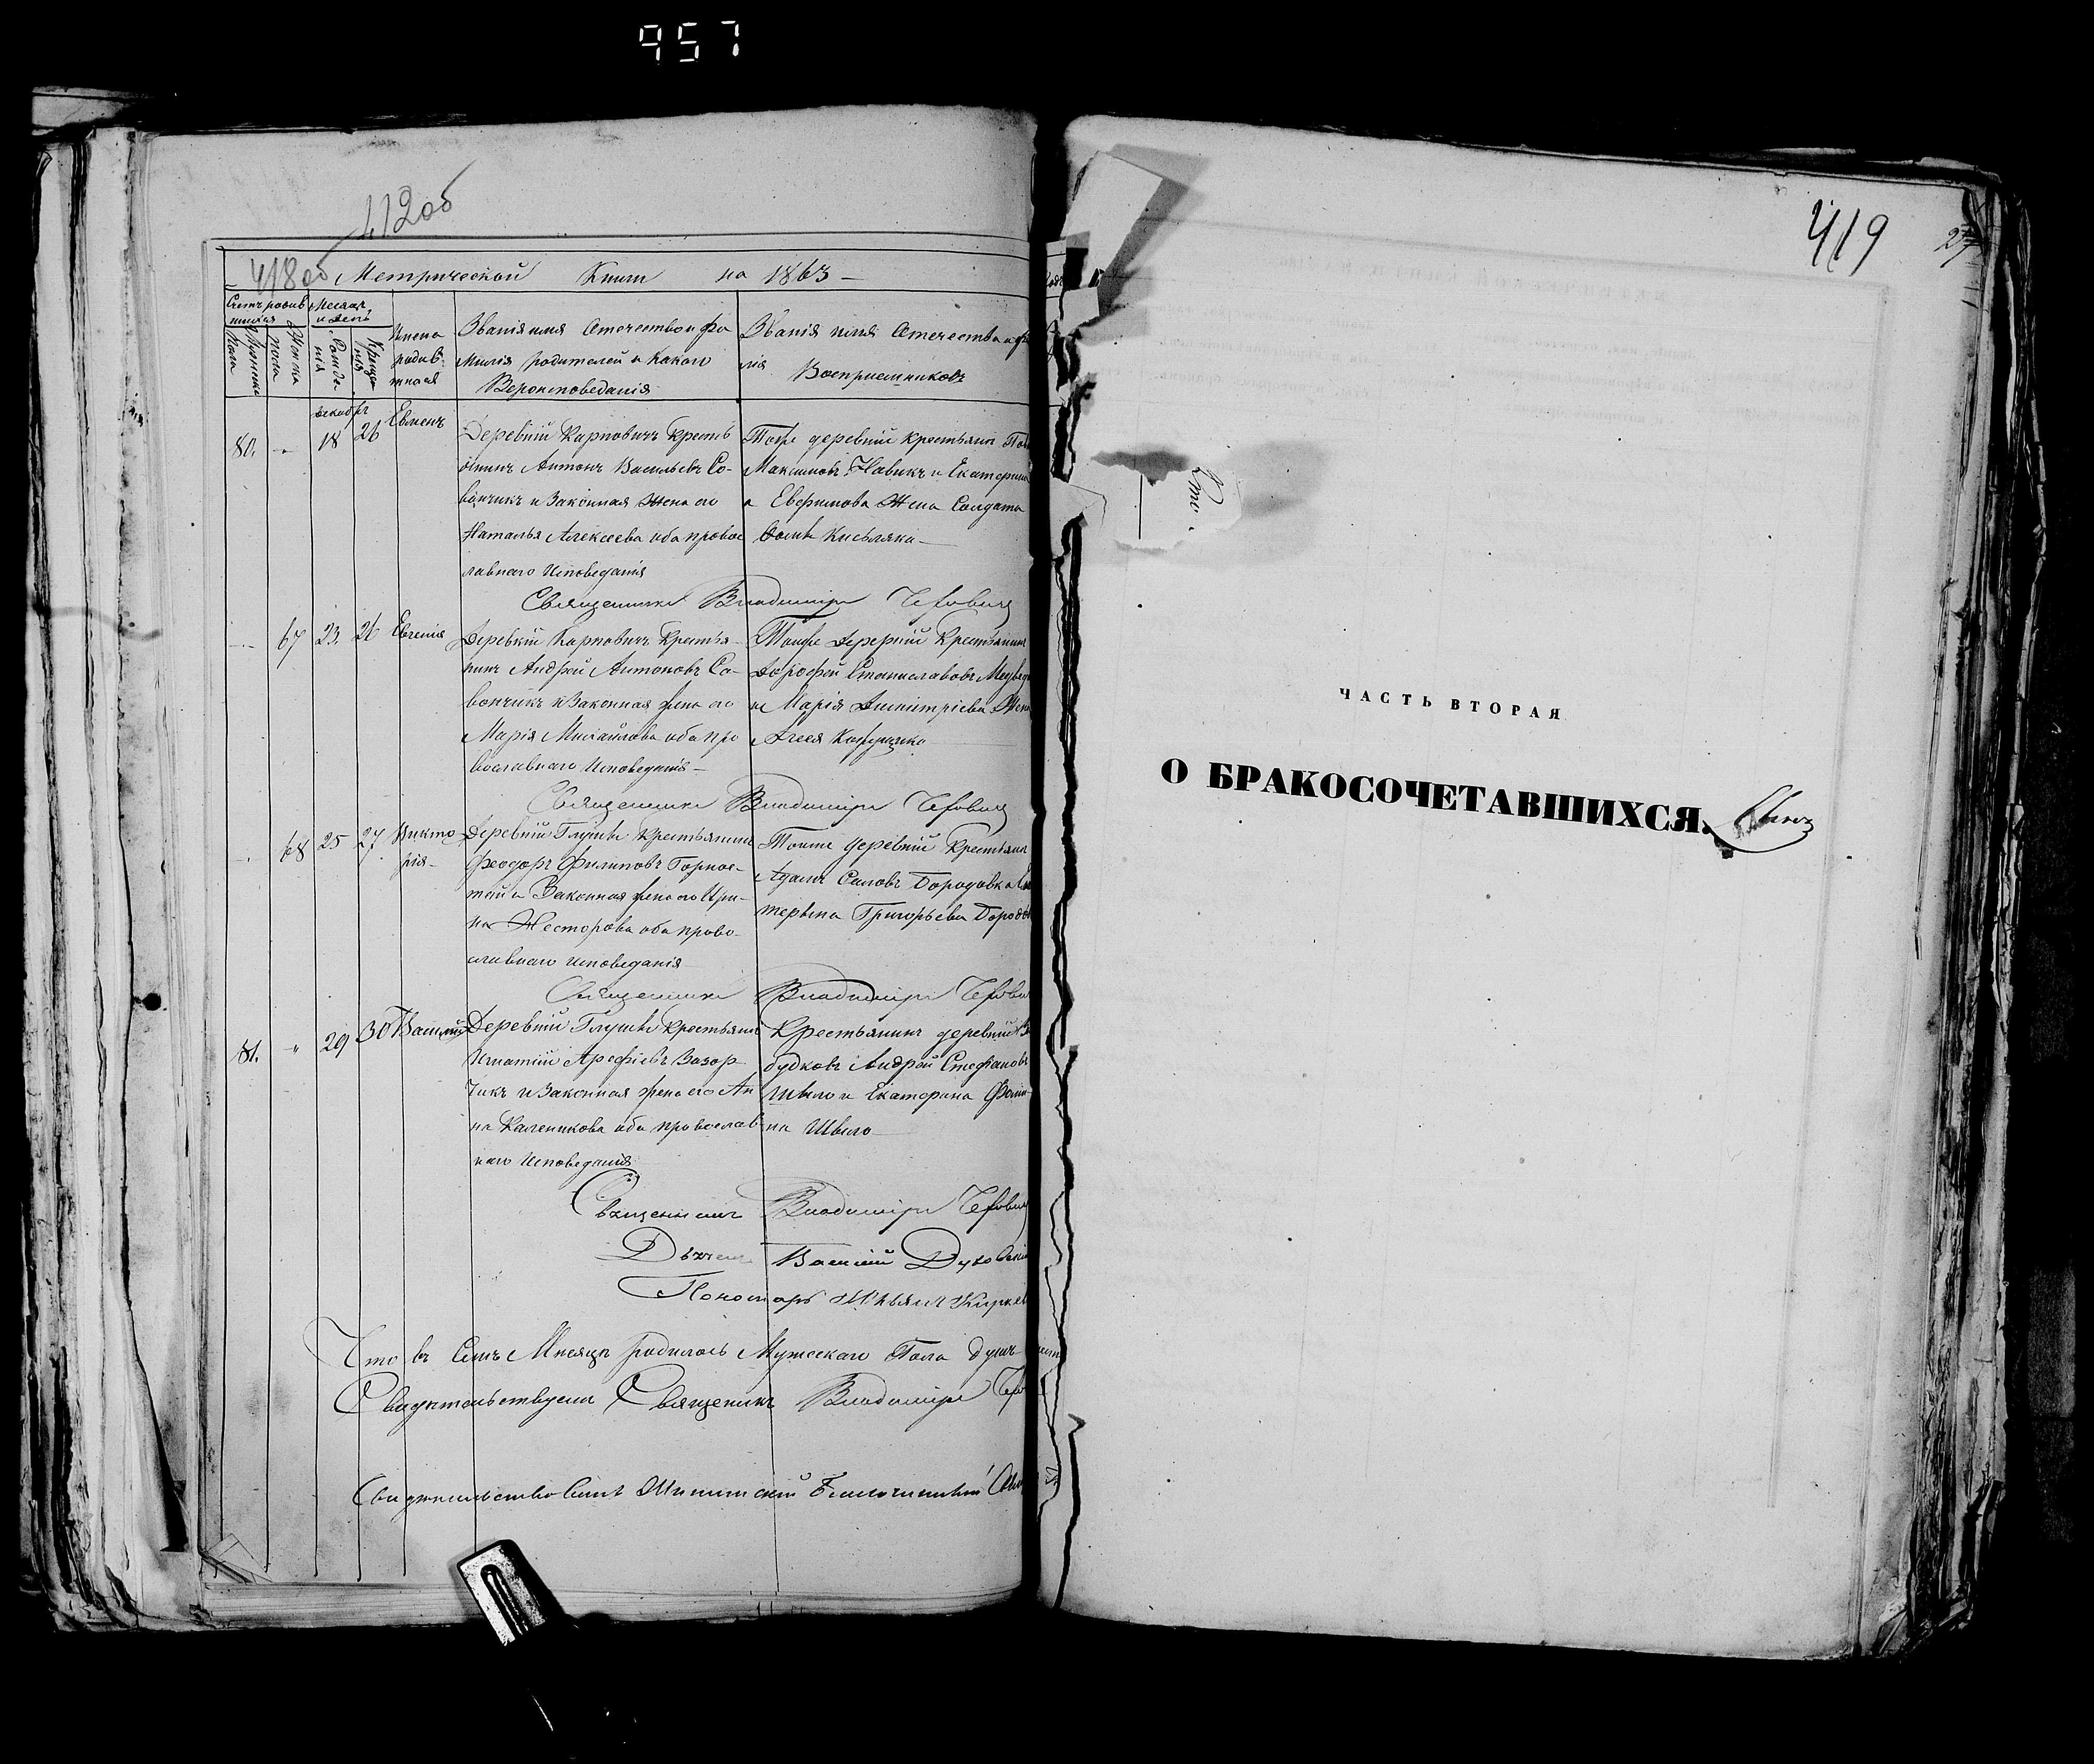 957
412об
418об
Метрической Книги на 1863 —
Счетъ родив
шихся
Мужеска
пола
Женска
пола
Месяцъ
и день
Рожде-
нія
Креще-
нія
Имена
родив-
шихся
Званія имя Отечество и фа
милія родителей и какого
Вероисповеданія
Званія имя Отечество и фа
лія Воспріемниковъ
декабрь
80. „ 18 26
Деревни Карповичъ Кресть
янинъ Антонъ Васильевъ Са-
вончикъ и Законная Жена его
Наталья Алексеева оба правос
лавнаго Исповеданія
Тойже деревни крестьянин
Максимовъ Новикъ и Екатерин
а Евфимова Жена Солдата
Священникъ Владиміръ
67 23. 26 Евгенія
Деревни Карповичъ Крестья-
нинъ Андрей Антоновъ Са-
вончикъ и Законная жена его
Марія Михайлова оба пра
вославнаго Исповеданія —
Тойже Деревни Крестьянинъ
Дорофей Станиславовъ Медвед
и Марія Димитріева Жена
Священникъ Владиміръ
68 25 27 Викто
рія-
Деревни Глуши Крестьянинъ
Феодоръ Филиповъ Горнос-
тай и Законная жена его Ири-
на Несторова оба право-
славнаго исповеданія
Тоиже деревни Крестьянин
Адамъ Силовъ Бородавка Ека
терина Григорьева Бородав
Священникъ Владиміръ
81. „ 29 30 Василій
Деревни Глуши Крестьянинъ
Игнатій Арефіевъ Захар
чикъ и Законная жена его Ан
на Каленикова оба православ
наго Исповеданія
Крестьянинъ деревни
будковъ Андрей Стефановъ
Швыло и Екатерина Фоми-
на Швыло
Священникъ Владиміръ
Дьячекъ Василій
Пономарь
Что въ Семъ Месяце родилось Мужескаго Пола душъ
Свидетельствуемъ Священникъ Владиміръ
Свидетельствовалъ Благочинный
419
27
Что
ЧАСТЬ ВТОРАЯ
О БРАКОСОЧЕТАВШИХСЯ.